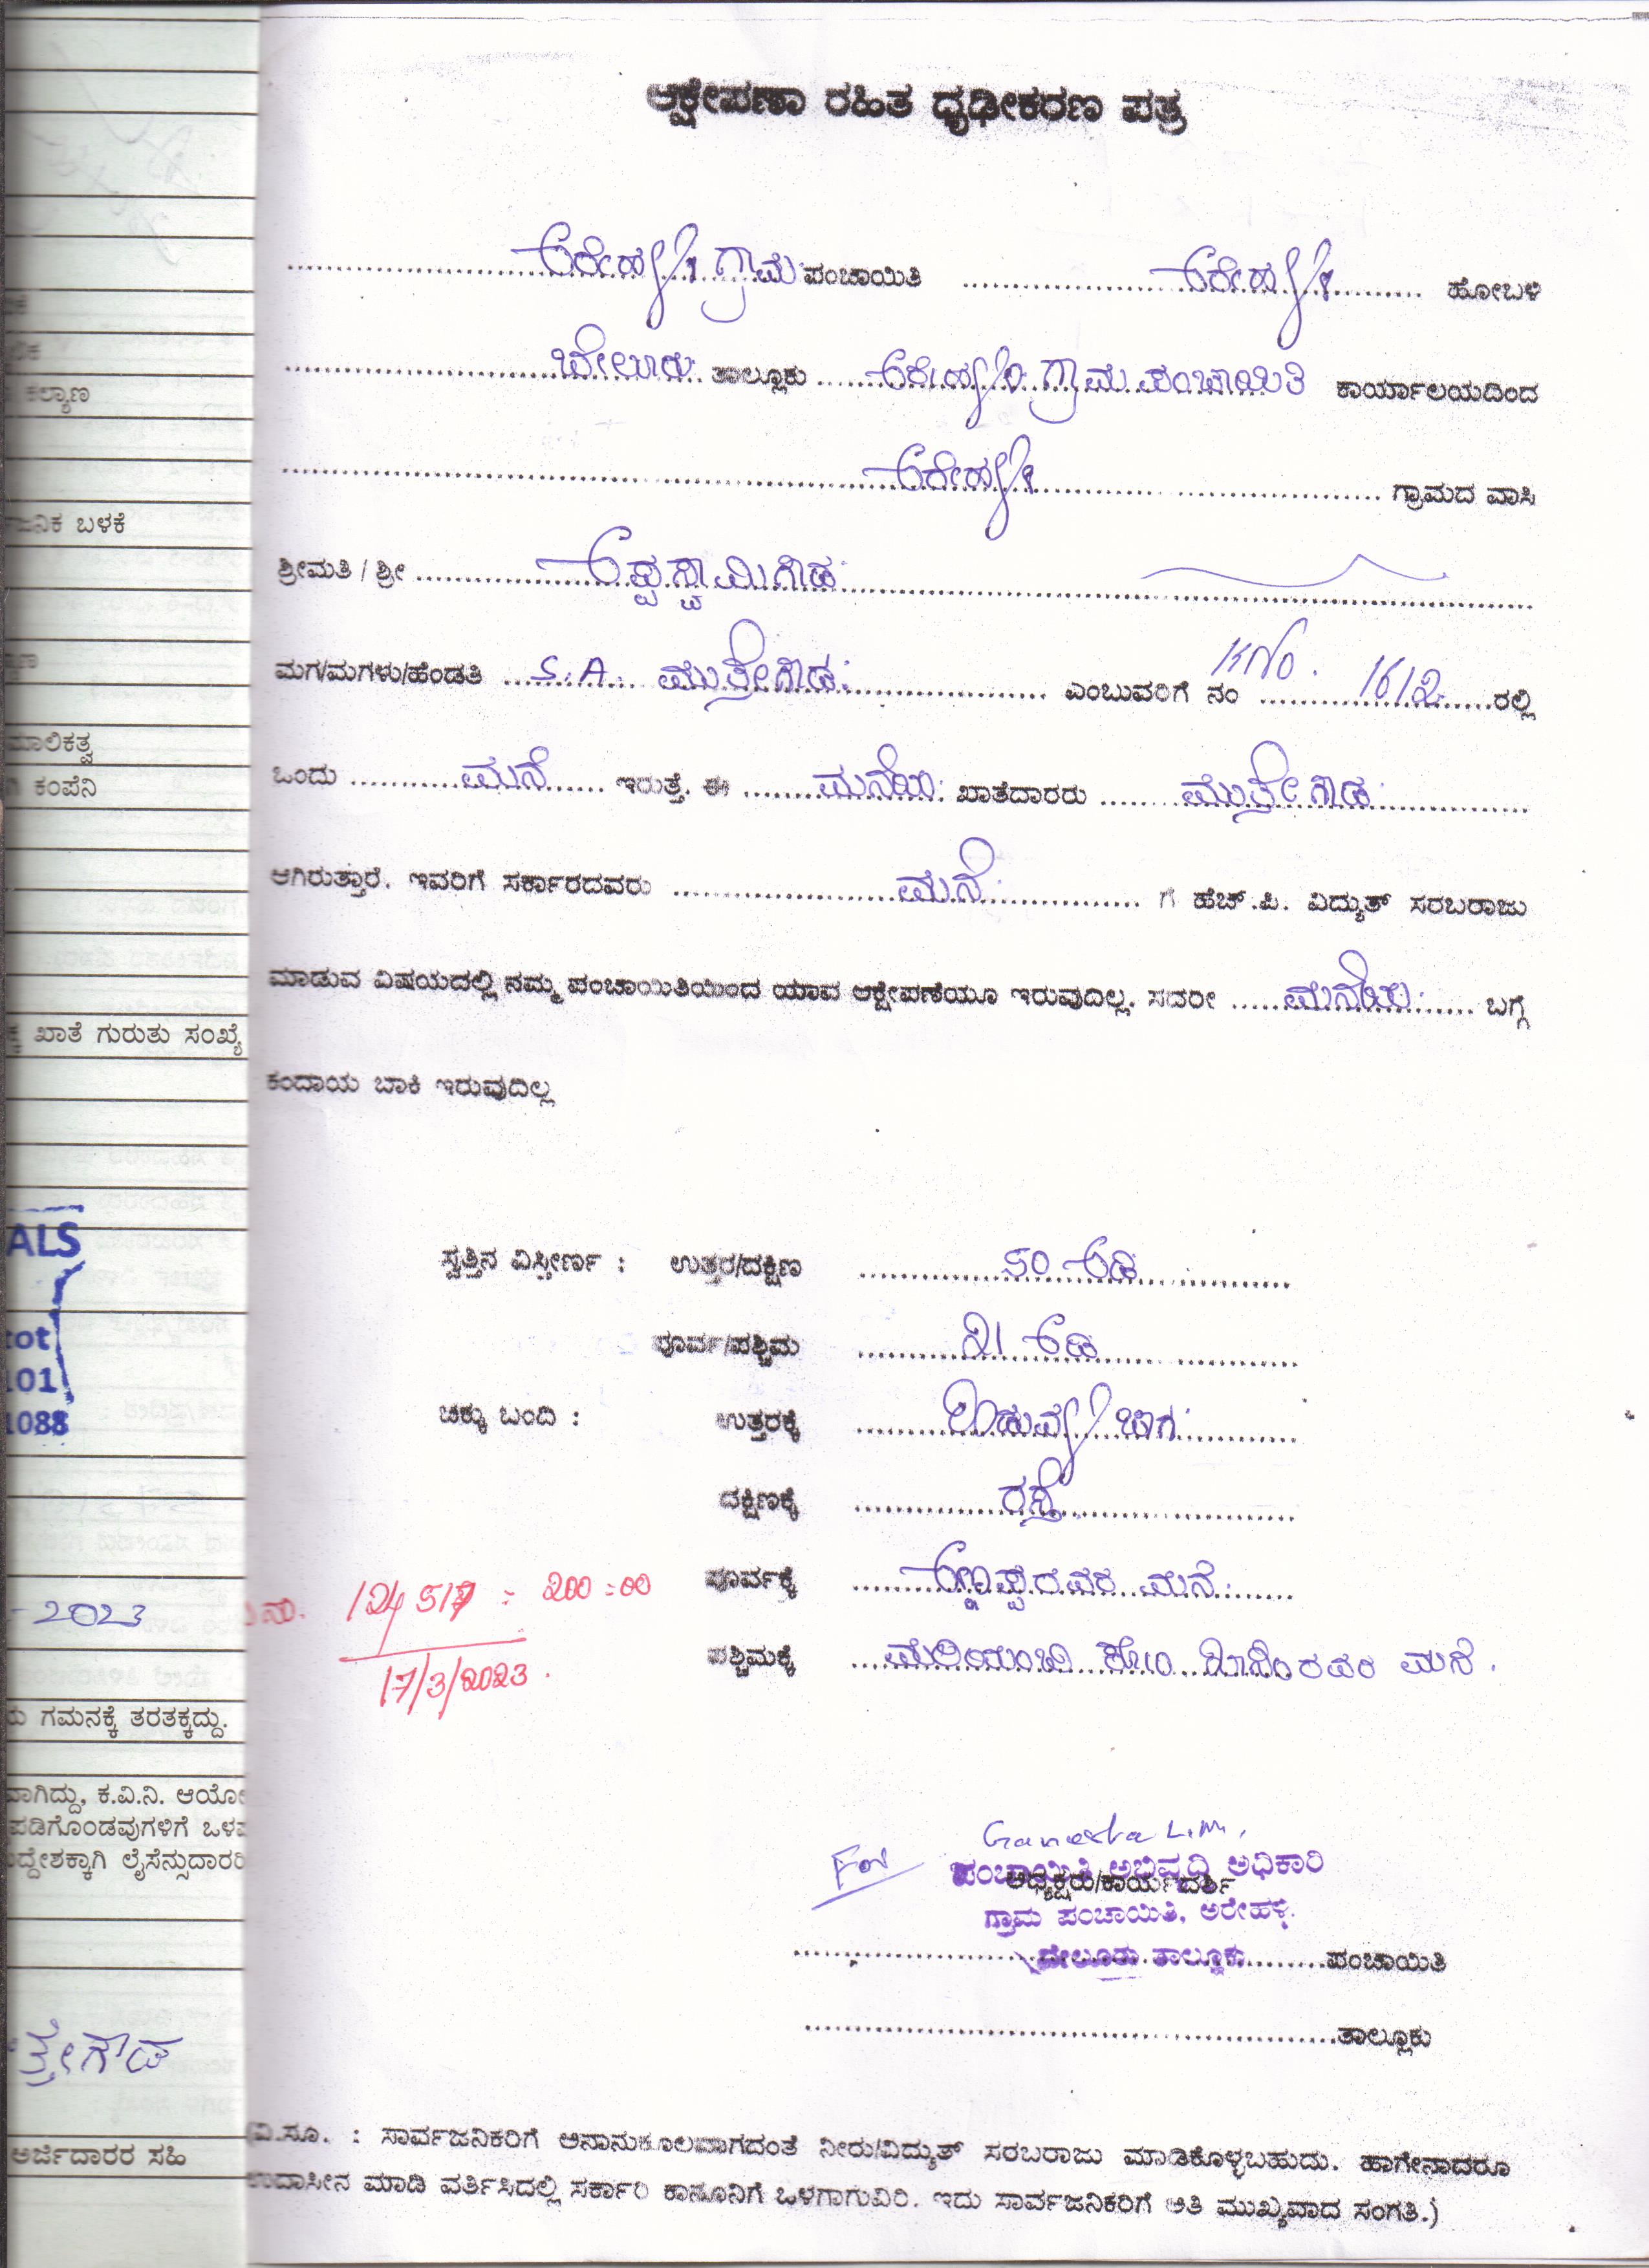 ಆಕ್ಷೇಪಣಾ ರಹಿತ ಧೃಢೀಕರಣ ಪತ್ರ
ಅರೇಹಳ್ಳಿ ಗ್ರಾಮ ಪಂಚಾಯಿತಿ ಅರೇಹಳ್ಳಿ ಹೋಬಳಿ
ಬೇಲೂರು ತಾಲ್ಲೂಕು ಅರೇಹಳ್ಳಿ ಗ್ರಾಮ ಪಂಚಾಯಿತಿ ಕಾರ್ಯಾಲಯದಿಂದ
ಅರೇಹಳ್ಳಿ ಗ್ರಾಮದ ವಾಸಿ
ಶ್ರೀಮತಿ / ಶ್ರೀ ಅಪ್ಪಸ್ವಾಮಿಗೌಡ
ಮಗ/ಮಗಳು/ಹೆಂಡತಿ S.A. ಮುತ್ತೇಗೌಡ ಎಂಬುವರಿಗೆ ನಂ KNo. 1612 ರಲ್ಲಿ
ಒಂದು ಮನೆ ಇರುತ್ತೆ. ಈ ಮನೆಯ ಖಾತೆದಾರರು ಮುತ್ತೇಗೌಡ
ಆಗಿರುತ್ತಾರೆ. ಇವರಿಗೆ ಸರ್ಕಾರದವರು ಮನೆ ಗೆ ಹೆಚ್.ಪಿ. ವಿದ್ಯುತ್ ಸರಬರಾಜು
ಮಾಡುವ ವಿಷಯದಲ್ಲಿ ನಮ್ಮ ಪಂಚಾಯಿತಿಯಿಂದ ಯಾವ ಆಕ್ಷೇಪಣೆಯೂ ಇರುವುದಿಲ್ಲ. ಸದರೀ ಮನೆಯ ಬಗ್ಗೆ
ಕಂದಾಯ ಬಾಕಿ ಇರುವುದಿಲ್ಲ
ಸ್ವತ್ತಿನ ವಿಸ್ತೀರ್ಣ : ಉತ್ತರ/ದಕ್ಷಿಣ 50 ಅಡಿ
ಪೂರ್ವ/ಪಶ್ಚಿಮ 21 ಅಡಿ
ಚಕ್ಕು ಬಂದಿ : ಉತ್ತರಕ್ಕೆ ಜಾಗ
ದಕ್ಷಿಣಕ್ಕೆ ರಸ್ತೆ
ಪೂರ್ವಕ್ಕೆ ಅಣ್ಣಪ್ಪರವರ ಮನೆ
ಪಶ್ಚಿಮಕ್ಕೆ ರವರ ಮನೆ.
124517 = 200=00
17/3/2023.
Ganesha L.M.
For
ಪಂಚಾಯಿತಿ ಅಭಿವೃದ್ಧಿ ಅಧಿಕಾರಿ
ಅಧ್ಯಕ್ಷರು/ಕಾರ್ಯದರ್ಶಿ
ಗ್ರಾಮ ಪಂಚಾಯಿತಿ, ಅರೇಹಳ್ಳಿ.
ಬೇಲೂರು ತಾಲ್ಲೂಕು ಪಂಚಾಯಿತಿ
ತಾಲ್ಲೂಕು
(ವಿ.ಸೂ. : ಸಾರ್ವಜನಿಕರಿಗೆ ಅನಾನುಕೂಲವಾಗದಂತೆ ನೀರು/ವಿದ್ಯುತ್ ಸರಬರಾಜು ಮಾಡಿಕೊಳ್ಳಬಹುದು. ಹಾಗೇನಾದರೂ
ಉದಾಸೀನ ಮಾಡಿ ವರ್ತಿಸಿದಲ್ಲಿ ಸರ್ಕಾರಿ ಕಾನೂನಿಗೆ ಒಳಗಾಗುವಿರಿ. ಇದು ಸಾರ್ವಜನಿಕರಿಗೆ ಅತಿ ಮುಖ್ಯವಾದ ಸಂಗತಿ.)
ಕಲ್ಯಾಣ
ಜನಿಕ ಬಳಕೆ
ಮಾಲಿಕತ್ವ
ಕಂಪೆನಿ
ಖಾತೆ ಗುರುತು ಸಂಖ್ಯೆ
ALS
tot
101
1088
-2023
ಗಮನಕ್ಕೆ ತರತಕ್ಕದ್ದು.
ವಾಗಿದ್ದು, ಕ.ವಿ.ನಿ. ಆಯೋ
ಪಡಿಗೊಂಡವುಗಳಿಗೆ ಒಳಪ
ದ್ದೇಶಕ್ಕಾಗಿ ಲೈಸೆನ್ಸುದಾರರ
ತ್ತೇಗೌಡ
ಅರ್ಜಿದಾರರ ಸಹಿ